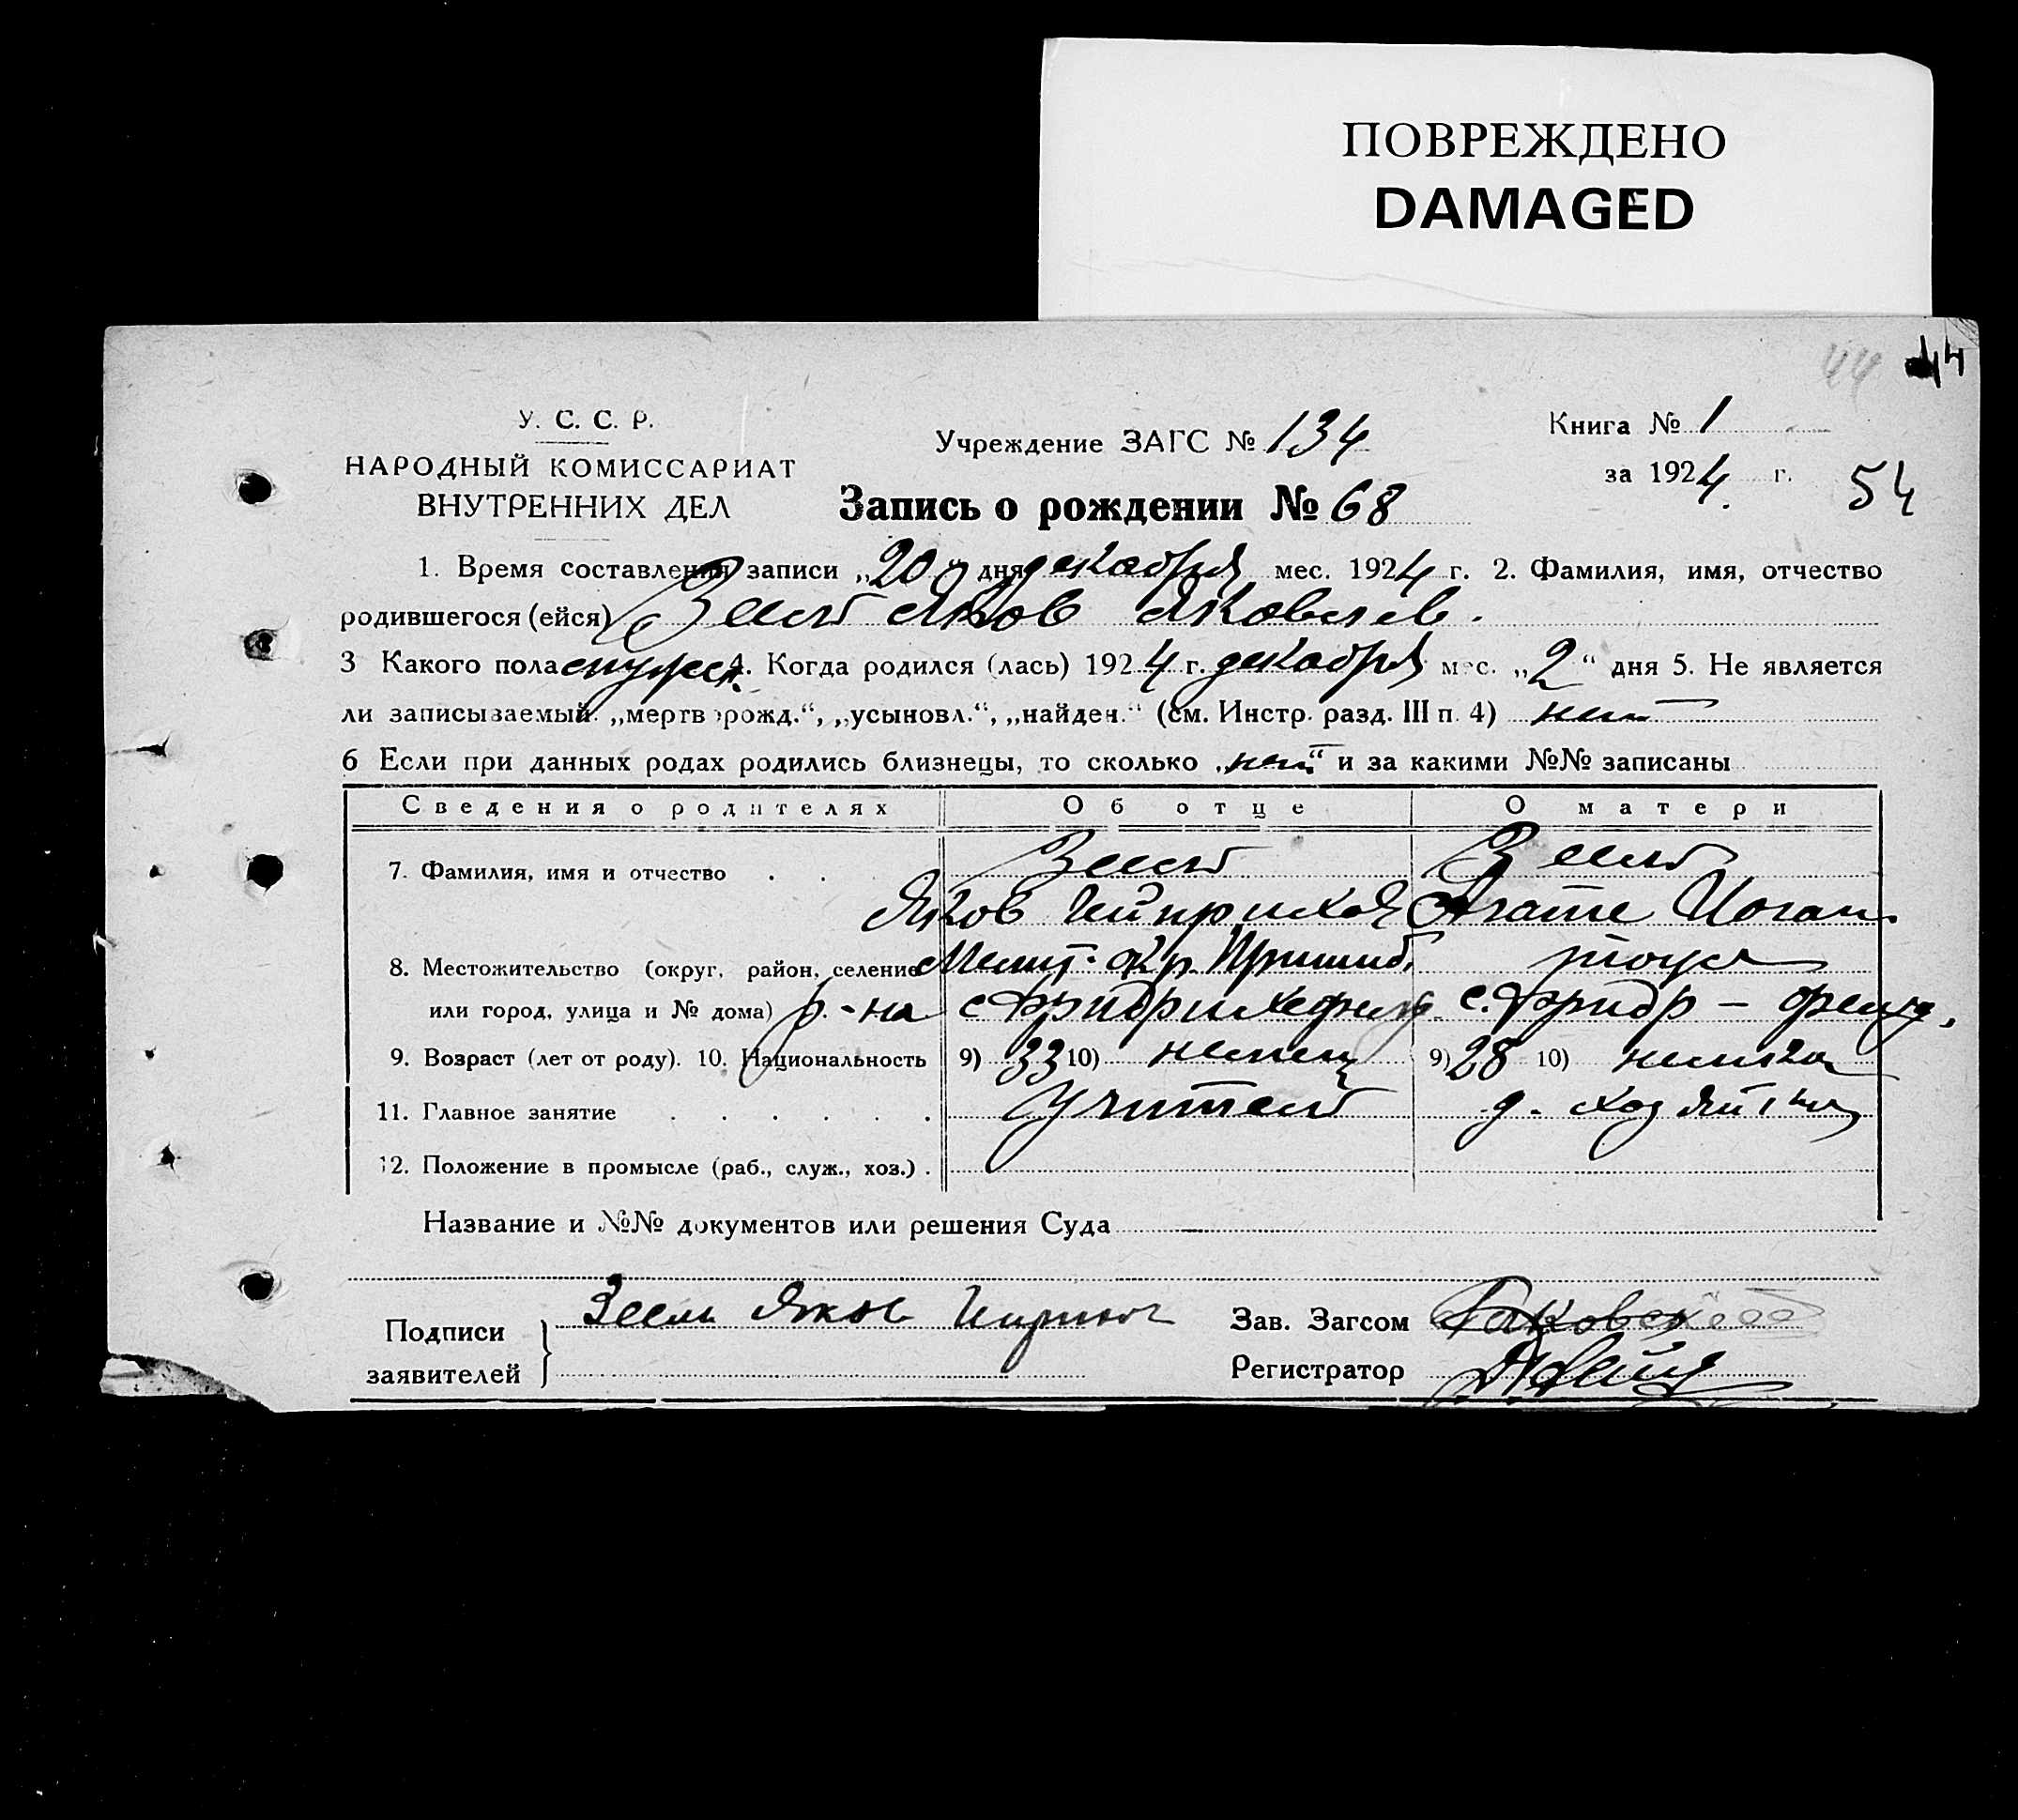 ПОВРЕЖДЕНО
DAMAGED
44 44
У. С. С. Р.
НАРОДНЫЙ КОМИССАРИАТ
ВНУТРЕННИХ ДЕЛ
Учреждение ЗАГС № 134
Книга № 1
за 1924 г.
54
Запись о рождении № 68
1. Время составления записи „20“ дня декабря мес. 1924 г. 2. Фамилия, имя, отчество
родившегося (ейся) Зеель Яков Яковлев.
3 Какого пола мужск. 4. Когда родился (лась) 1924 г. декабря мес. „2“ дня 5. Не является
ли записываемый „мертворожд.“, „усыновл.“, „найден.“ (см. Инстр. разд. III п. 4) нет
6 Если при данных родах родились близнецы, то сколько „нет“ и за какими №№ записаны
Сведения о родителях Об отце О матери
7. Фамилия, имя и отчество . . Зеель Зеель
Яков Агате Иоган
8. Местожительство (округ, район, селение Мелит. окр. Пришиб.
или город, улица и № дома) р-на с. Фридрихсфельд с. Фридр-фельд.
9. Возраст (лет от роду). 10. Национальность 9) 33 10) немец 9) 28 10) немка
11. Главное занятие . . . . . . Учитель д. хозяйка
12. Положение в промысле (раб., служ., хоз.) .
Название и №№ документов или решения Суда
Подписи
заявителей
Зеель Яков
Зав. Загсом
Регистратор